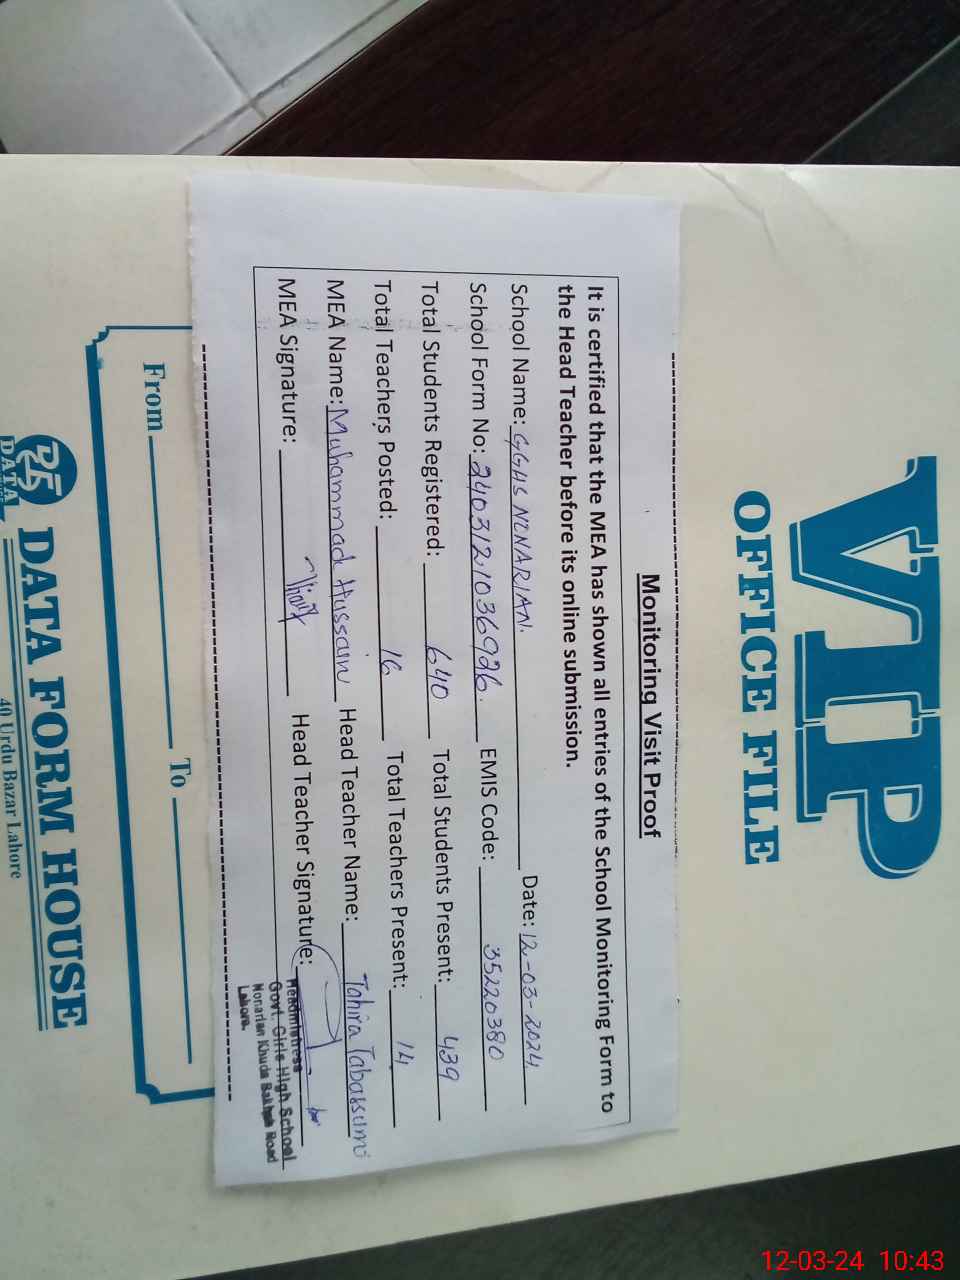 VIP
OFFICE FILE
Monitoring Visit Proof
It is certified that the MEA has shown all entries of the School Monitoring Form to
the Head Teacher before its online submission.
School Name: GGHS NONARIAN. Date: 12-03-2024
School Form No: 2403121036926. EMIS Code: 35220380
Total Students Registered: 640 Total Students Present: 439
Total Teachers Posted: 16 Total Teachers Present: 14
MEA Name: Muhammad Hussain Head Teacher Name: Tahira Tabassum
MEA Signature: Head Teacher Signature:
Headmistress
Govt. Girls High School
Nonarian Khuda Bakhsh Road
Lahore.
From To
DATA DATA FORM HOUSE
40 Urdu Bazar Lahore
12-03-24 10:43